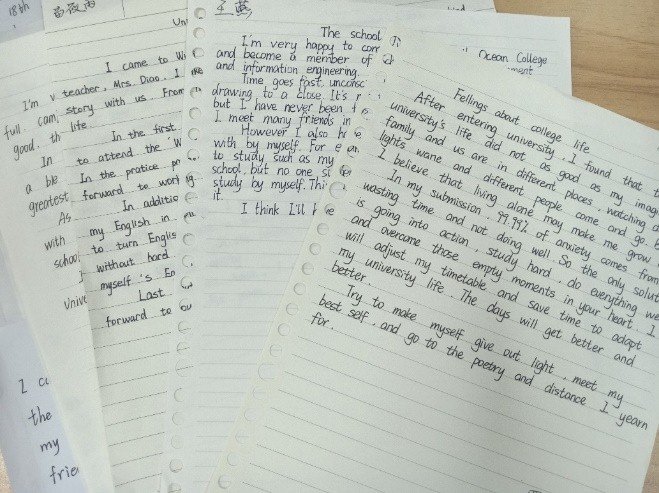 18th
Uni
I came to Wi
teacher, Mrs. Diao. I
story with us. From
life
In the first
to attend the "W
In the pratice
forward to work
In additio
my English in
to turn Englis
without hard
myself's En
Last
forward to
I'm
full
good. th
In
a ble
greatest
As
with
school
Unive
the
my
frie
王
The school
I'm very happy to com
and become a member of
and information engineering.
Time goes fast, unconsc
drawing to a close. It's
but I have never been
I meet many friends in
However I also
with by myself. For
to study, such as my
school, but no one
study by myself. Thi
it.
I think I'll
Ocean College
ment
Fellings about college life
After entering university, I found that t
university's life did not as good as my imag
family and us are in different places, watching
lights wane and different people come and go.
I believe that living alone may make me grow
In my submission, 99.99% of anxiety comes from
wasting time and not doing well. So the only solut
is going into action, study hard, do everything we
and overcome those empty moments in your heart. I
will adjust my timetable and save time to adapt
my university life. The days will get better and
better.
Try to make myself give out light, meet my
best self, and go to the poetry and distance I yearn
for.